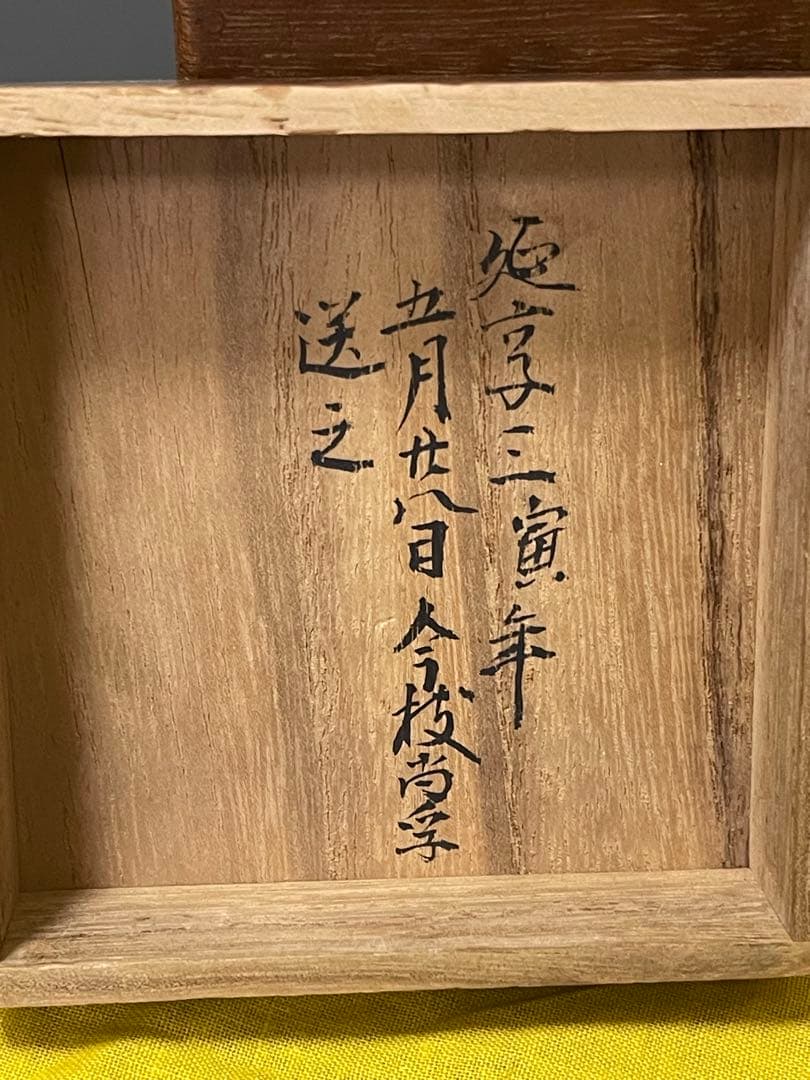 延享三寅年
五月廿八日今枝尚孚
送之